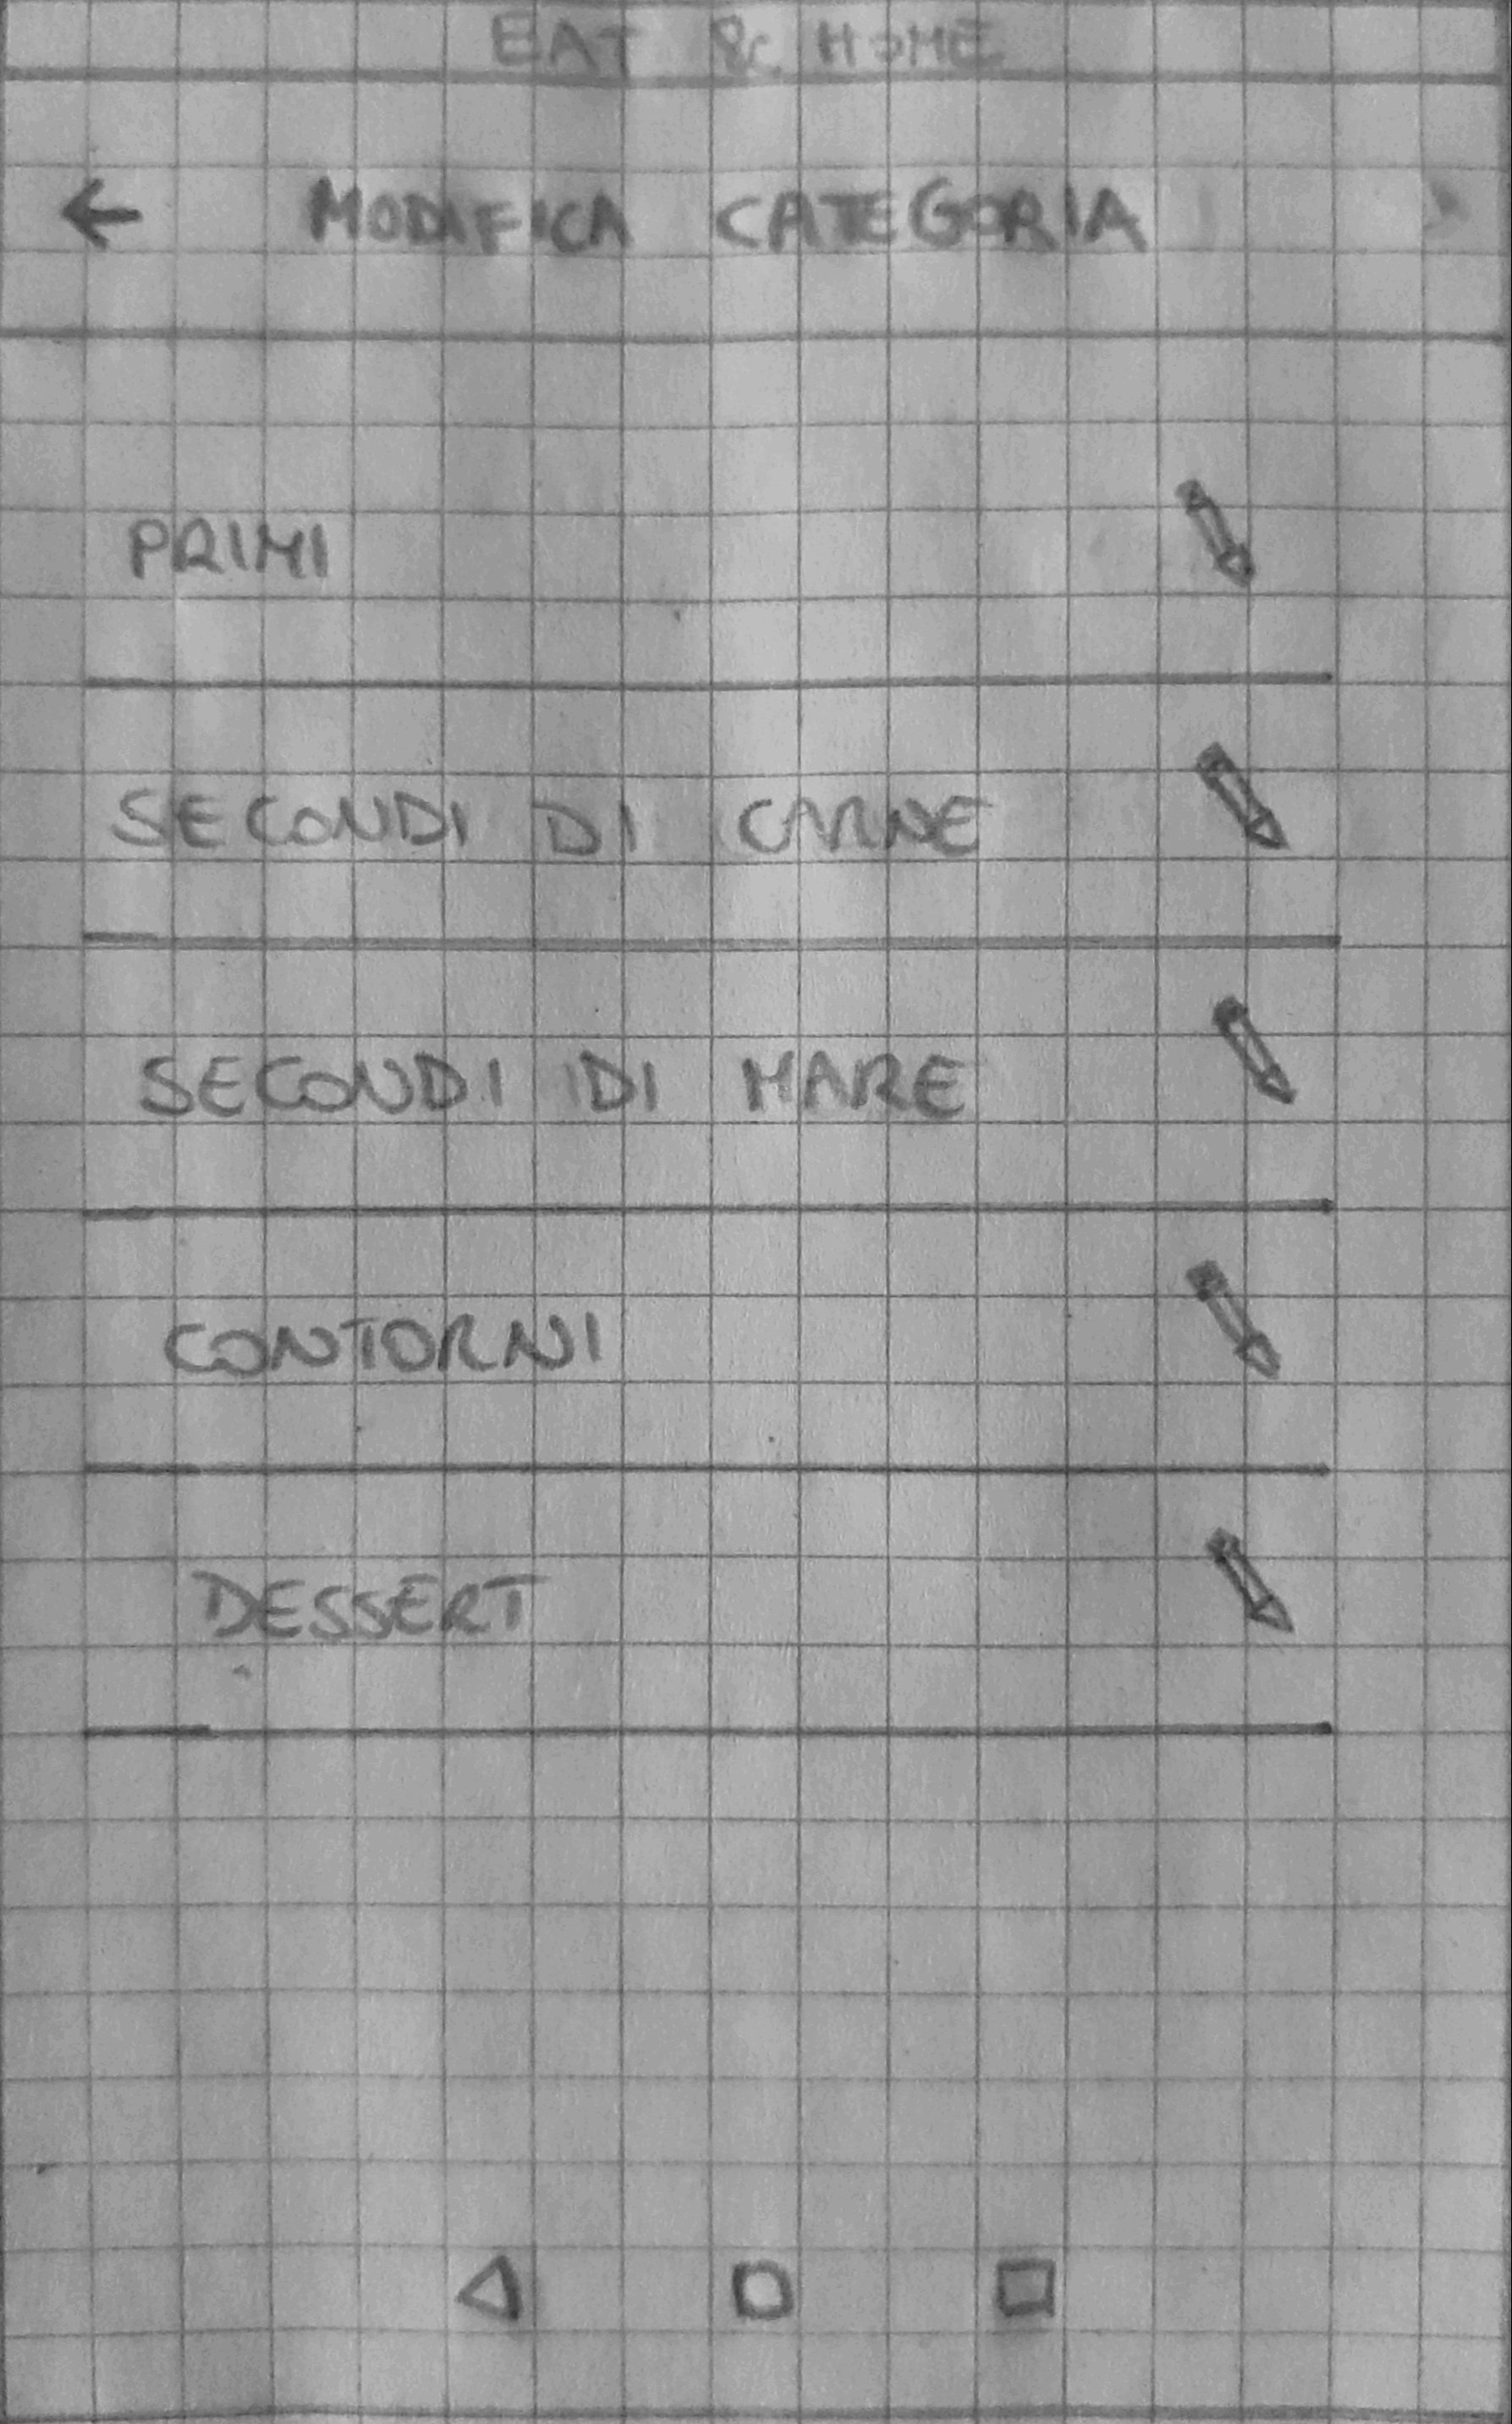 EAT & HOME
MODIFICA CATEGORIA
PRIMI
SECONDI DI CARNE
SECONDI DI MARE
CONTORNI
DESSERT